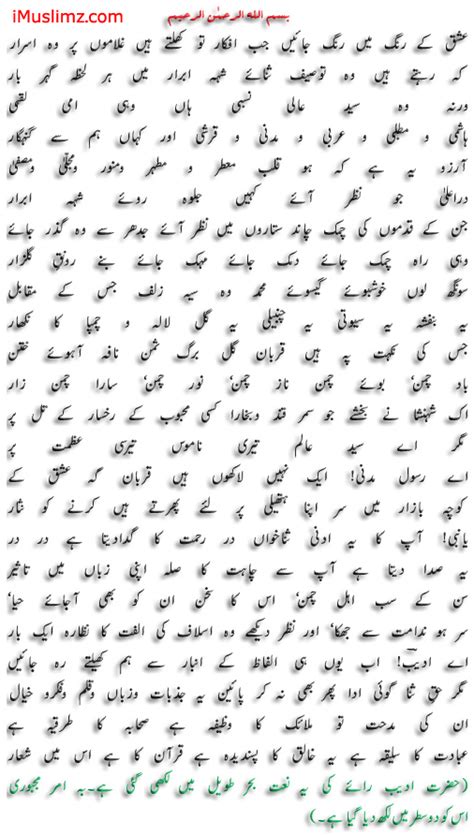 iMuslimz.com
بسم الله الرحمن الرحيم
عشق کے رنگ میں رنگ جائیں جب افکار تو کھلتے ہیں غلاموں پر وہ اسرار
کہ رہتے ہیں وہ توصیف ثنائے شہہ ابرار میں ہر لحظہ گہر بار
ورنہ وہ سید عالی نسبی ہاں وہی امی لقبی
ہاشمی و مطلبی و عربی و مدنی و قرشی اور کہاں ہم سے گنہگار
آرزو یہ ہے کہ ہو قلب معطر و مطہر ومنور ومجلّٰی ومصفّٰی
دراعلیٰ جو نظر آئے کہیں جلوہ روئے شہہ ابرار
جن کے قدموں کی چمک چاند ستاروں میں نظر آئے جدھر سے وہ گذر جائے
وہی راہ چمک جائے دمک جائے مہک جائے بنے رونق گلزار
سونگھ لوں خوشبوئے گیسوئے محمد وہ سیہ زلف جس کے مقابل
یہ بنفشہ یہ سیوتی یہ چنبیلی یہ گل لالہ و چمپا کا نکھار
جس کی نکہت پہ ہیں قربان گل برگ سمن نافہ آہوئے ختن
باد چمن' بوئے چمن ناز چمن' نور چمن' سارا چمن زار
اک شہنشا نے بخشے جو سمر قند وبخارا کسی محبوب کے رخسار کے تل پر
مگر اے سید عالم تیری ناموس تیری عظمت پر
اے رسول مدنی! ایک نہیں لاکھوں ہیں قربان گہ عشق کے
کوچہ بازار میں سر اپنا ہتھیلی پر لئے پھرتے ہیں کرنے کو نثار
یانبی! آپ کا یہ ادنی ثناخواں در رحمت کا گدادیتا ہے در در
یہ صدا دیتا ہے آپ سے چاہت کا صلہ اپنی زباں میں تاثیر
سن کے سب اہل چمن' اس کا سخن ان کو بھی آجائے حیا'
سر ہو ندامت سے جھکا' اور نظر دیکھے وہ اسلاف کی الفت کا نظارہ ایک بار
اے ادیب! اب یوں ہی الفاظ کے انبار سے ہم کھیلتے رہ جائیں
مگر حق ثنا گوئی ادا پھر بھی نہ کر پائیں یہ جذبات وزباں وقلم وفکرو خیال
ان کی مدحت تو ملائک کا وظیفہ ہے صحابہ کا طریقہ ہے
عبادت کا سلیقہ ہے یہ خالق کا پسندیدہ ہے قرآن کا ہے اس میں شعار
(حضرت ادیب رائے کی یہ نعت بحر طویل میں لکھی گئی ہے۔بہ امر مجبوری
اس کو دو سطر میں لکھ دیا گیا ہے۔)